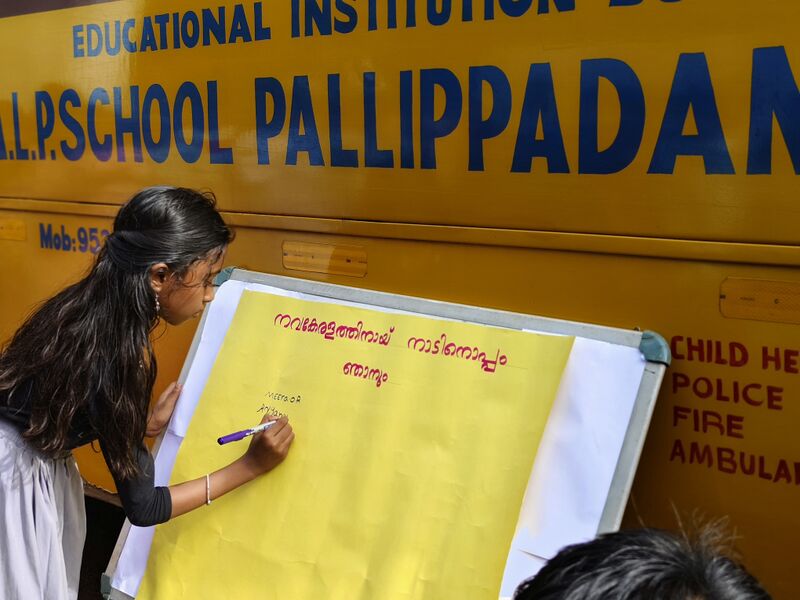 EDUCATIONAL INSTITUTION
A.L.P.SCHOOL PALLIPPADAM
Mob:953
നവകേരളത്തിനായ് നാടിനൊപ്പം
ഞാനും
MEERA.OR
CHILD HE
POLICE
FIRE
AMBULAN